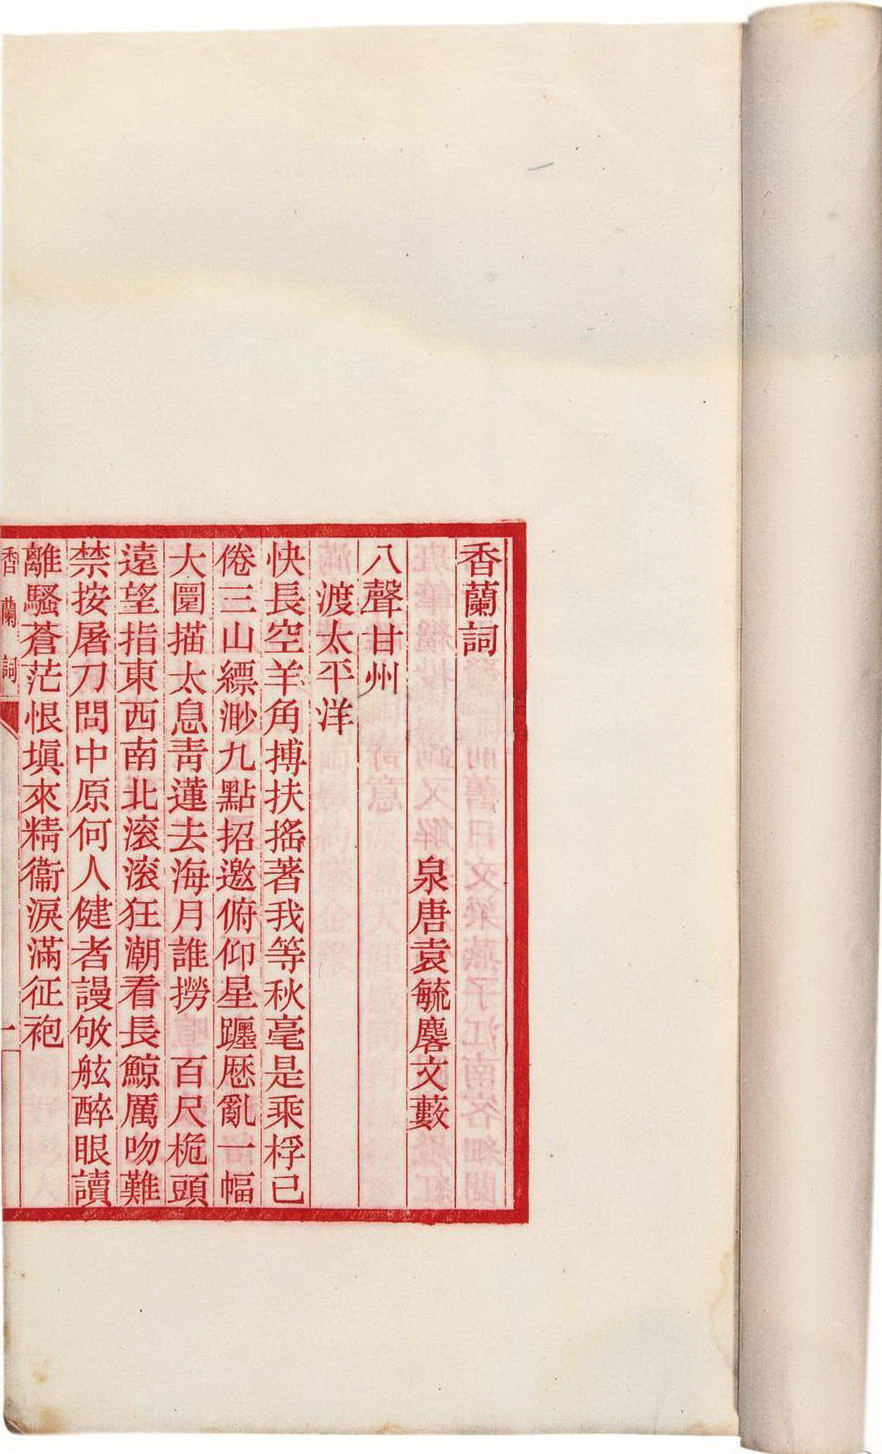 香蘭詞
泉唐袁毓麐文藪
八聲甘州
渡太平洋
快長空羊角搏扶搖著我等秋毫是乘桴已
倦三山縹渺九點招邀俯仰星躔厯亂一幅
大圜描太息青蓮去海月誰撈　百尺桅頭
遠望指東西南北滾滾狂潮看長鯨厲吻難
禁按屠刀問中原何人健者謾敂舷醉眼讀
離騷蒼茫恨塡來精衞淚滿征袍
香蘭詞
一